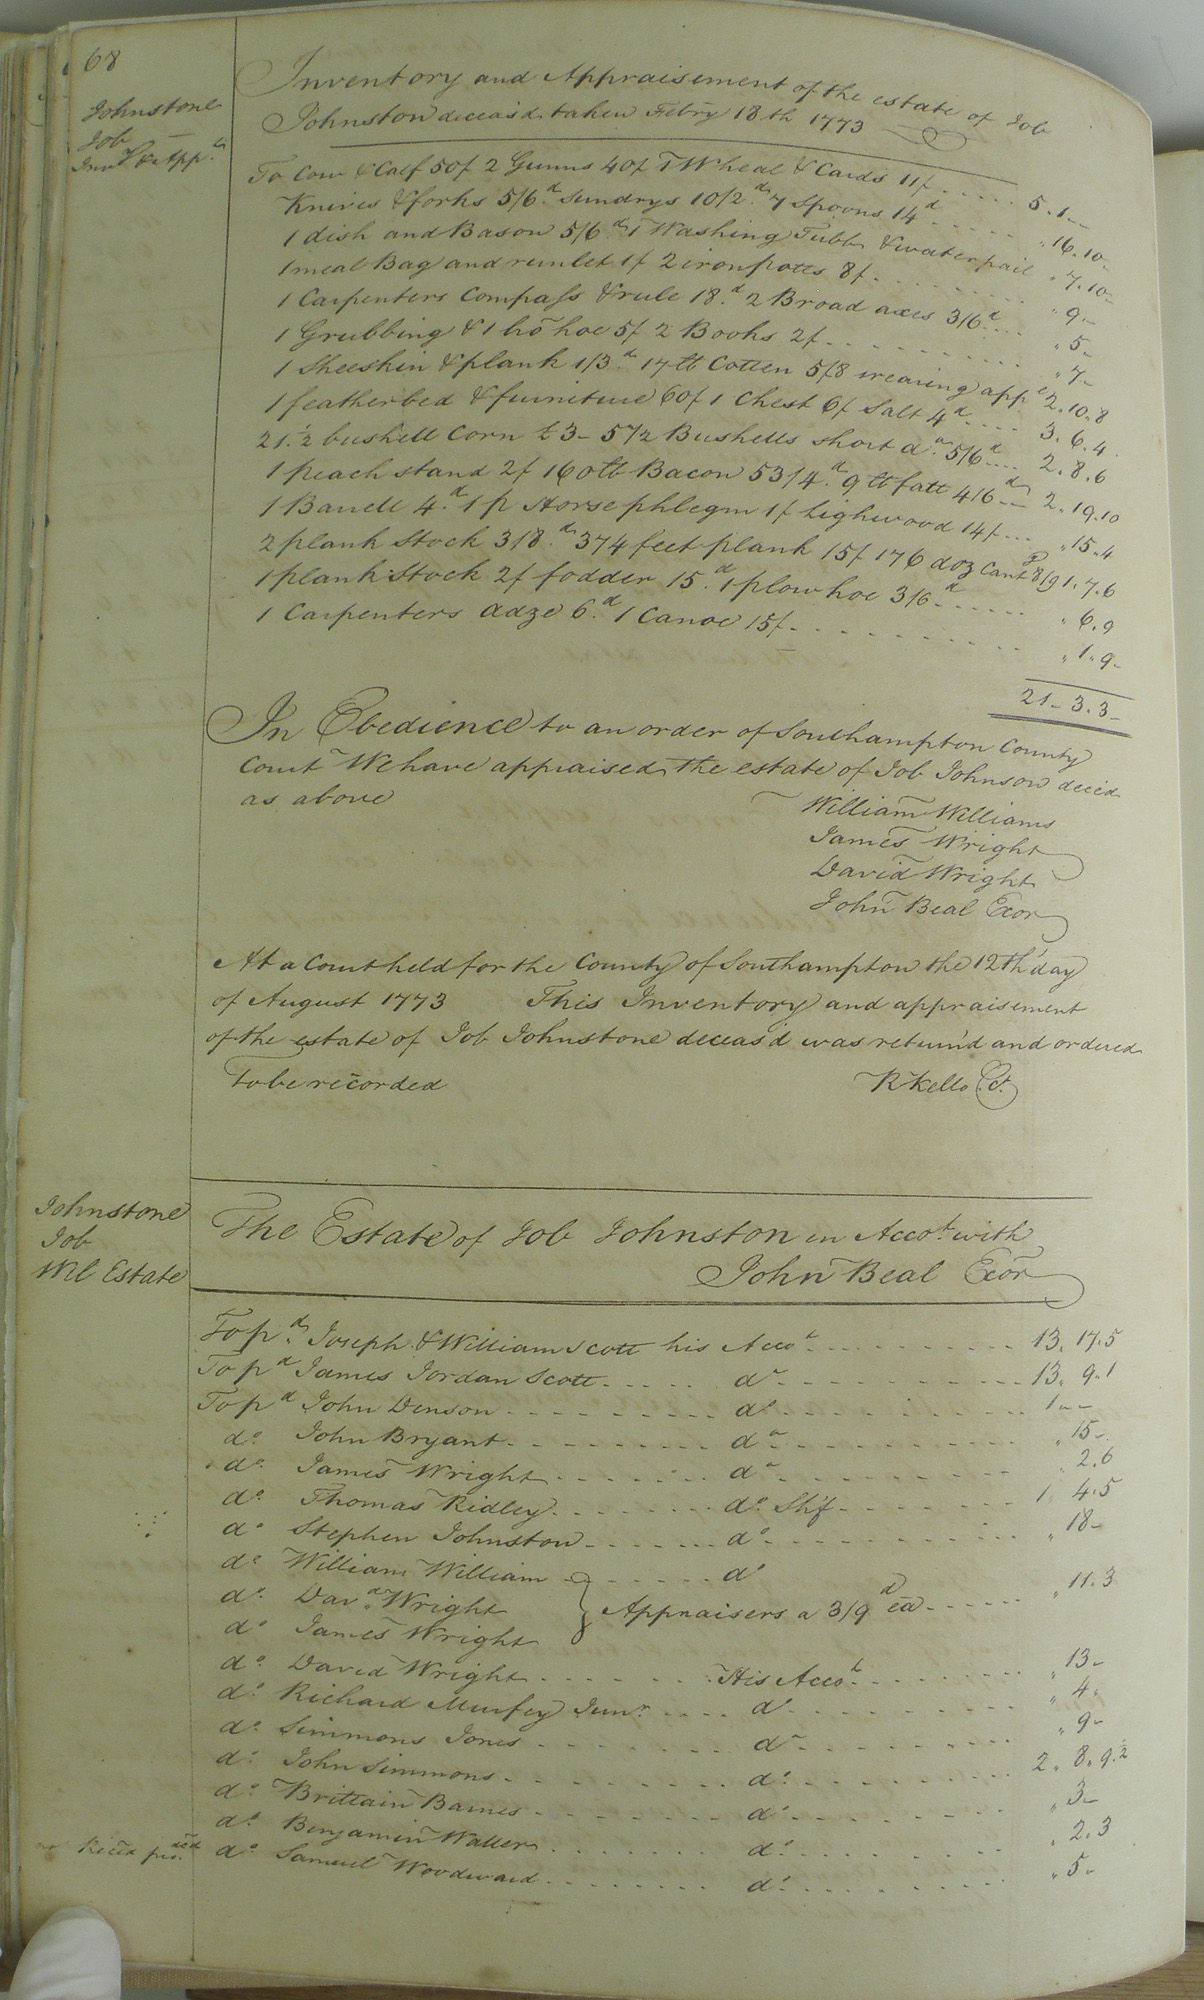 68
Johnstone
Job
Inv.y & App.t
Inventory and Appraisement of the estate of Job
Johnston deceas'd taken Febry 18th 1773
To Cow & Calf 50/ 2 Gunns 40/ 1 Wheal & Cards 11/ 5.1.-
Knives & forks 5/6.d Sundrys 10/2.d 7 Spoons 14d " 16.10-
1 dish and Bason 5/6.d 1 Washing Tubb & water pail " 7.10-
1 meal Bag and runlet 1/ 2 iron potts 8/ " 9-
1 Carpenters Compass & rule 18.d 2 Broad axes 3/6.d " 5-
1 Grubbing & 1 ho hoe 5/ 2 Books 2/ " 7-
1 Sheeskin & plank 1/3.d 17 lb Cotten 5/8 wearing app.l 2.10.8
1 featherbed & furniture 60/ 1 Chest 6/ Salt 4d 3.6.4
21.½ bushell Corn 3- 5½ Bushells short do 5/6d 2.8.6
1 peach stand 2/ 160 lb Bacon 53/4.d 9 lb fatt 4/6d 2.19.10
1 Barrell 4.d 1 p Horse phlegm 1/ Lighwood 14/ " 15.4
2 plank Stock 3/8.d 374 feet plank 15/ 176 doz Cant 8/9 1.7.6
1 plank Stock 2/ fodder 15.d 1 plow hoe 3/6 " 6.9
1 Carpenters adze 6.d 1 Canoe 15/ " 1.9-
21-3.3-
In Obedience to an order of Southampton County
Court We have appraised the estate of Job Johnson dec'd
as above
William Williams
James Wright
David Wright
John Beal Exor
At a Court held for the County of Southampton the 12th day
of August 1773 This Inventory and appraisement
of the estate of Job Johnstone deceas'd was return'd and ordered
to be recorded
R Kello C.C.
Johnstone
Job
Wil Estate
The Estate of Job Johnston in Acco.t with
John Beal Exor
To p.d Joseph & William Scott his Acco.t 13.17.5
To pd James Jordan Scott do 13.9.1
To pd John Denson do 1--
do John Bryant do " 15-
do James Wright do 2.6
do Thomas Ridley do Sh'f 1 4.5
do Stephen Johnston do " 18-
do William William do
do Dav.d Wright } Appraisers a 3/9d ea " 11.3
do James Wright
do David Wright His Acco.t " 13-
do Richard Murfey Jun.r do " 4-
do Simmons Jones do " 9-
do John Simmons do 2.8.9.½
do Brittain Barnes do " 3-
do Benjamin Waller do " 2.3
do Samuel Woodward do " 5-